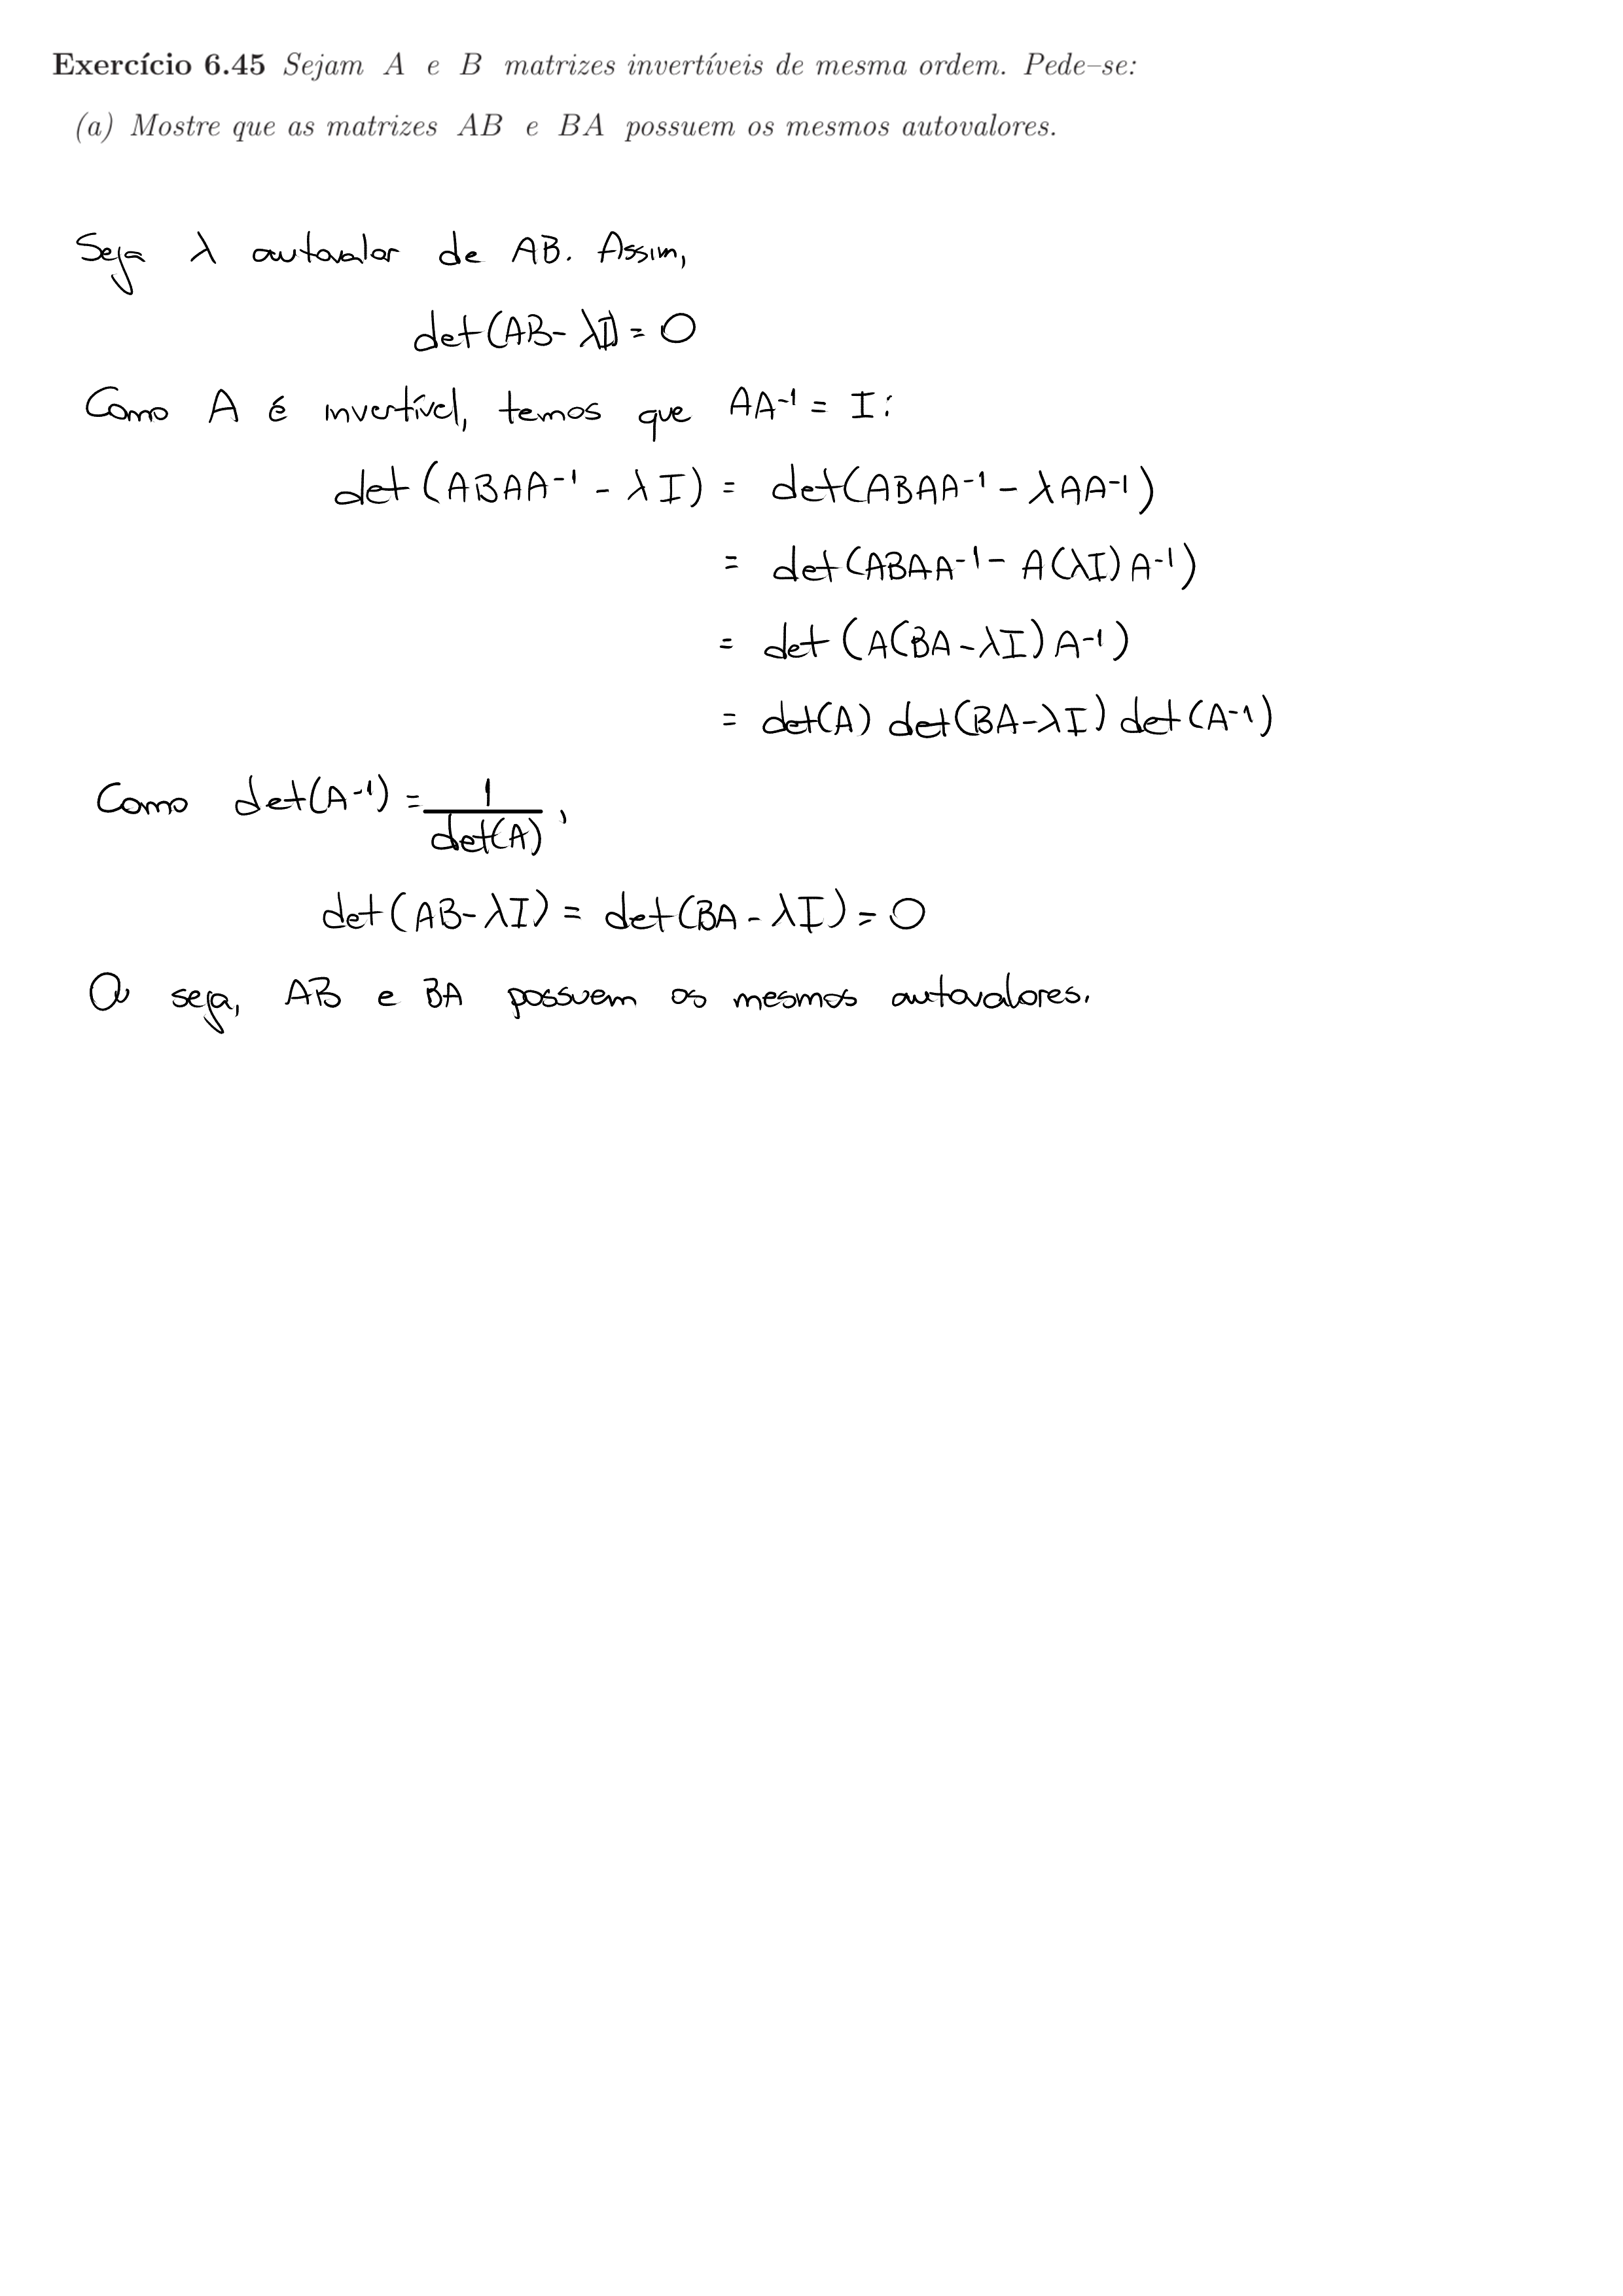 Exercício 6.45 Sejam A e B matrizes invertíveis de mesma ordem. Pede–se:
(a) Mostre que as matrizes AB e BA possuem os mesmos autovalores.
Seja λ autovalor de AB. Assim,
det(AB - λI) = 0
Como A é invertível, temos que AA⁻¹ = I:
det(ABAA⁻¹ - λI) = det(ABAA⁻¹ - λAA⁻¹)
= det(ABAA⁻¹ - A(λI)A⁻¹)
= det(A(BA - λI)A⁻¹)
= det(A) det(BA - λI) det(A⁻¹)
Como det(A⁻¹) = 1/det(A),
det(AB - λI) = det(BA - λI) = 0
Ou seja, AB e BA possuem os mesmos autovalores.